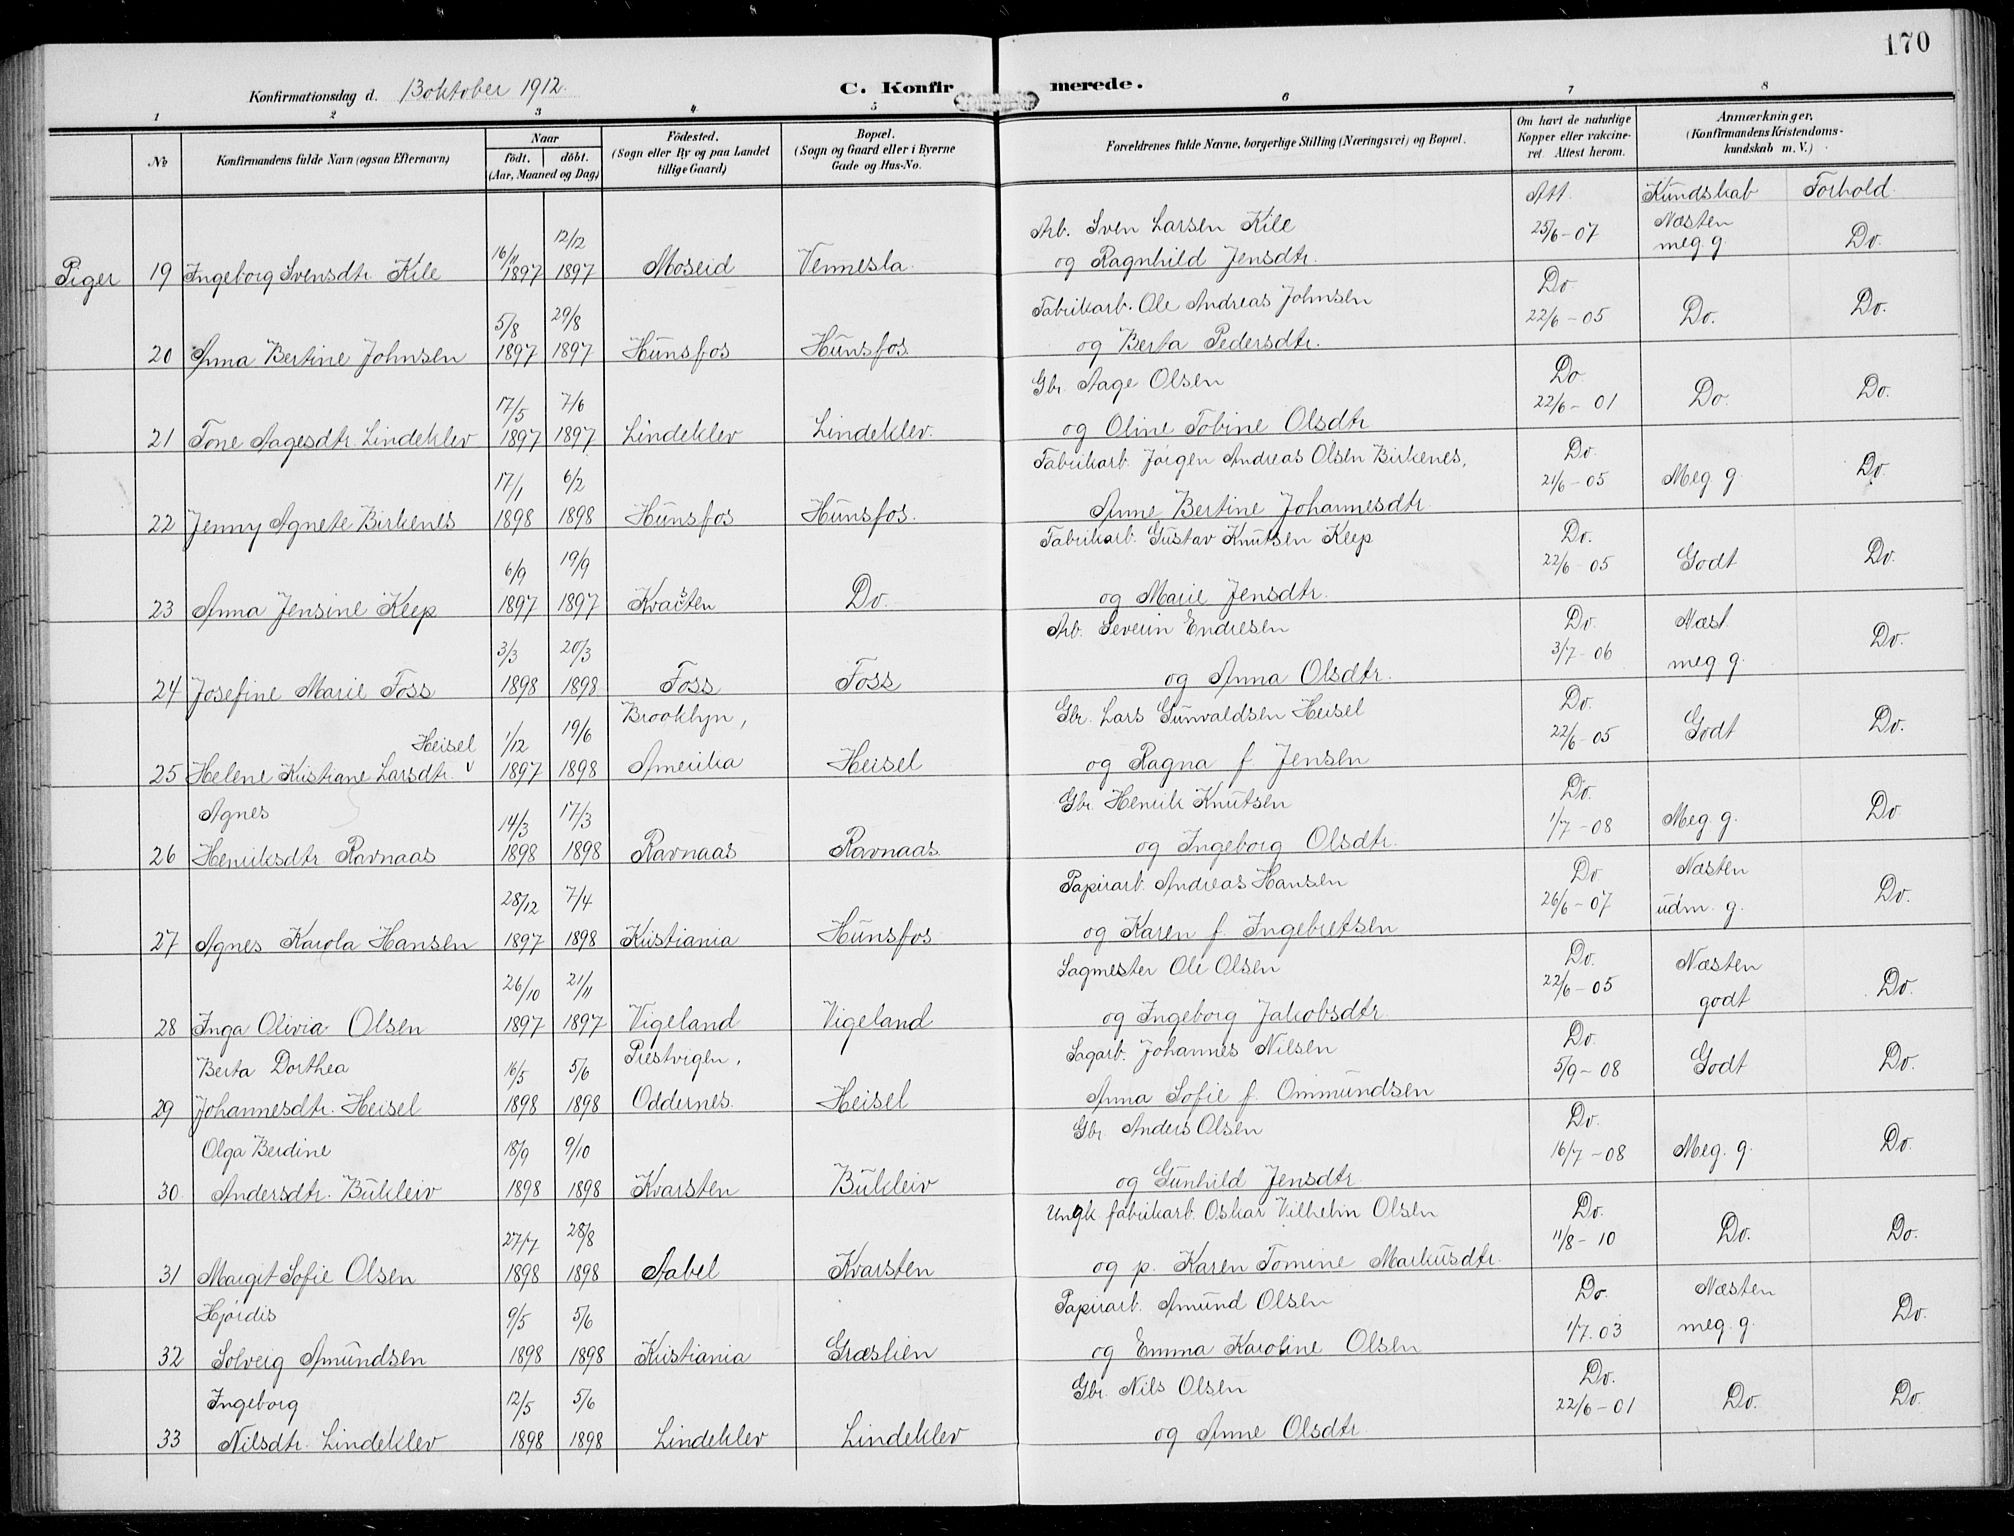 170
Konfirmationsdag d. 13 oktober 1912.
C. Konfirmerede.
1 2 3 4 5 6 7 8
No
Konfirmandens fulde Navn (ogsaa Efternavn)
Naar
født. døbt.
(Aar, Maaned og Dag)
Fødested.
(Sogn eller By og paa Landet
tillige Gaard)
Bopæl.
(Sogn og Gaard eller i Byerne
Gade og Hus-No.
Forældrenes fulde Navne, borgerlige Stilling (Næringsvei) og Bopæl.
Om havt de naturlige
Kopper eller vakcine-
ret Attest herom.
Anmærkninger,
(Konfirmandens Kristendoms-
kundskab m. V.)
Att. Kundskab Forhold.
Piger
19 Ingeborg Svensdtr. Kile 16/11 1897 12/12 1897 Moseid Vennesla.
Arb. Sven Larsen Kile
og Ragnhild Jensdtr. 25/6-07 Næsten meg. g. Do.
20 Anna Bertine Johnsen 5/8 1897 29/8 1897 Hunsfos Hunsfos.
Fabrikarb. Ole Andreas Johnsen
og Berta Pedersdtr. Do 22/6-05 Do. Do.
21 Tone Aagesdtr. Lindeklev 17/5 1897 7/6 1897 Lindeklev Lindeklev.
Gbr. Aage Olsen
og Oline Tobine Olsdtr Do. 22/6-01 Do. Do.
22 Jenny Agnete Birkenes 17/1 1898 6/2 1898 Hunsfos Hunsfos.
Fabrikarb. Jørgen Andreas Olsen Birkenes,
Anne Bertine Johannesdtr. Do. 21/6-05 Meg. g. Do.
23 Anna Jensine Keep 6/9 1897 19/9 1897 Kvarsten Do.
Fabrikarb. Gustav Knutsen Keep
og Marie Jensdtr. Do. 22/6-05 Godt Do.
24 Josefine Marie Foss 3/3 1898 20/3 1898 Foss Foss
Arb. Severin Endresen
og Anna Olsdtr. Do. 3/7-06 Næst meg g. Do.
Heisel
25 Helene Kristiane Larsdtr. v 1/12 1897 19/6 1898 Brooklyn, Amerika Heisel
Gbr. Lars Gunvaldsen Heisel
og Ragna f. Jensen Do. 22/6-05 Godt Do.
Agnes
26 Henriksdtr Ravnaas 14/3 1898 17/3 1898 Ravnaas Ravnaas.
Gbr. Henrik Knutsen
og Ingeborg Olsdtr. Do. 1/7-08 Meg. g. Do.
27 Agnes Karola Hansen 28/12 1897 7/4 1898 Kristiania Hunsfos
Papirarb. Andreas Hansen
og Karen f. Ingebretsen Do 26/6-07 Næsten udm. g. Do.
28 Inga Olivia Olsen 26/10 1897 21/11 1897 Vigeland Vigeland
Sagmester Ole Olsen
og Ingeborg Jakobsdtr. Do. 22/6-05 Næsten godt Do.
Berta Dorthea
29 Johannesdtr. Heisel 16/5 1898 5/6 1898 Prestvigen, Oddernes. Heisel
Sagarb. Johannes Nilsen
Anna Sofie f. Ommundsen Do. 5/9-08 Godt Do.
Olga Berdine
30. Andersdtr. Bukleiv 18/9 1898 9/10 1898 Kvarsten Bukleiv
Gbr. Anders Olsen
og Gunhild Jensdtr. Do. 16/7-08 Meg. g. Do.
31 Margit Sofie Olsen 27/7 1898 28/8 1898 Aabel Kvarsten
Ungk. fabrikarb. Oskar Vilhelm Olsen
og p. Karen Tomine Markusdtr. Do. 11/8-10 Do. Do.
Hjørdis
32 Solveig Amundsen 9/5 1898 5/6 1898 Kristiania Græslien
Papirarb. Amund Olsen
og Emma Karoline Olsen Do. 1/7.03 Næsten meg. g. Do.
Ingeborg
33 Nilsdtr. Lindeklev 12/5 1898 5/6 1898 Lindeklev Lindeklev
Gbr. Nils Olsen
og Anne Olsdtr Do. 22/6-01 Do. Do.